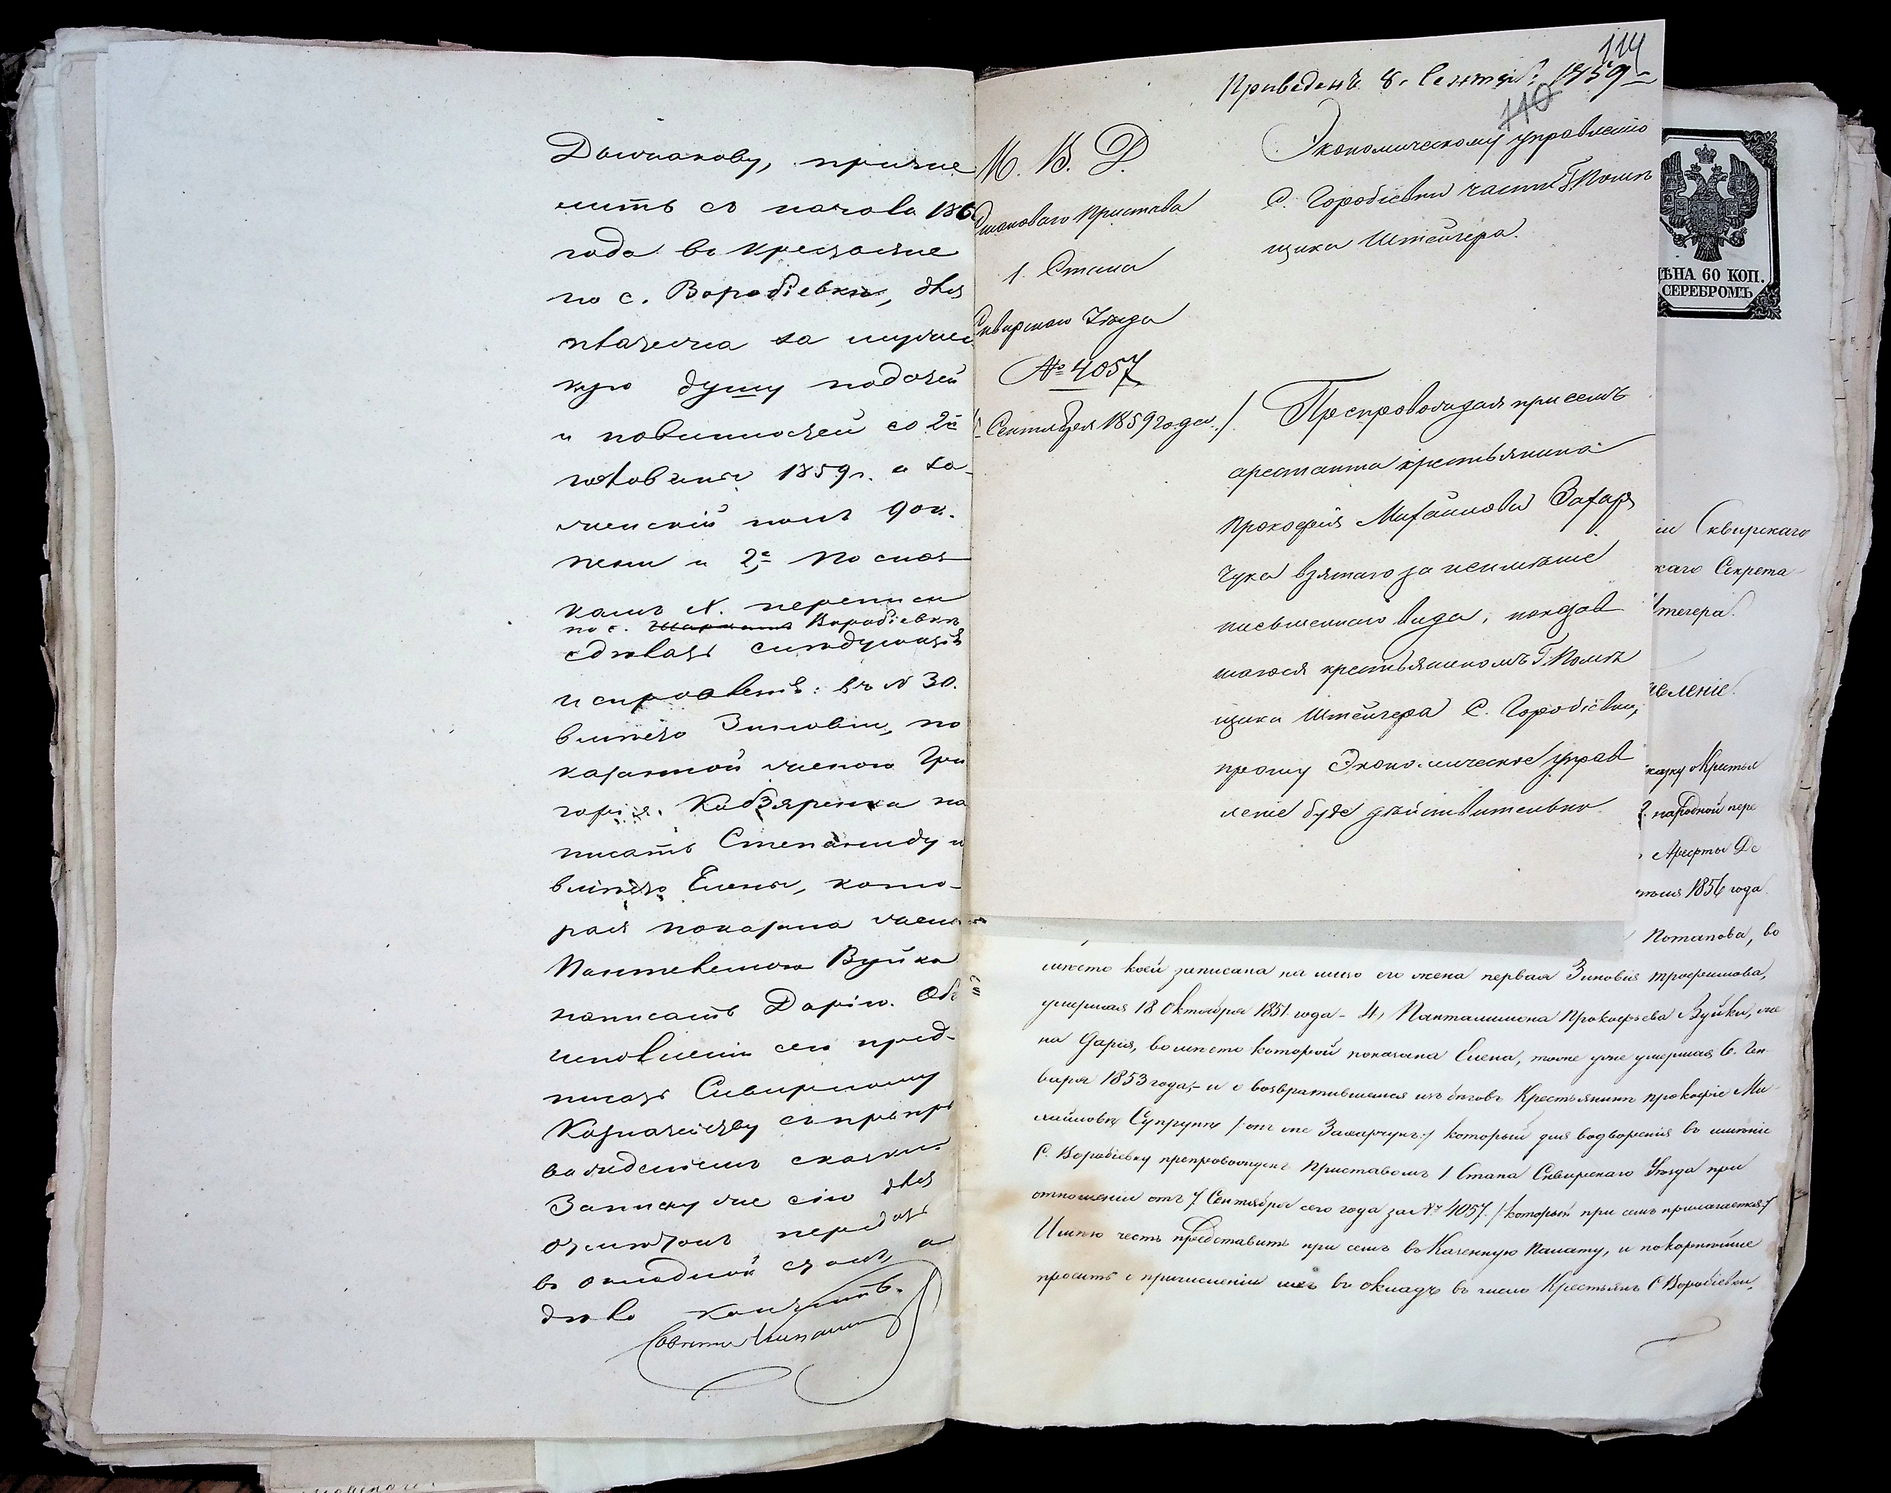 Дымчакову, причис
лить съ начала 186
года въ крестьяне
по с. Воробіевкѣ, для
платежа за мужес
кую душу податей
и повинностей со 2й
половины 1859 г. а за
пени и 2, По сказ
камъ X. переписи
по с. Воробіевкѣ
сдѣлать слѣдующія
исправленія: въ N 30.
вмѣсто Зиновіи, по
казанной женою Гри
горія, Кобзяренка на
писать Степаниду и
вмѣсто Елены, кото-
рая показана женою
Пантелимона Вуйка
написать Дарію. Объ
исполненіи сего пред-
писать Сквирскому
Казначейству съ препро
вожденіемъ сказки.
Записку же сію для
отмѣтокъ передать
въ окладной столъ, а
дѣло кончить.
114
Приведенъ 8. Сентяб. 1859
110
М. В. Д.
Становаго Пристава
1. Стана
Сквирскаго Уѣзда
№ 4057
Сентября 1859 года.
Экономическому управленію
С. Горобіевки части Г. Помѣ
щика Штейгера.
Препровождая при семъ
арестанта крестьянина
Прокофія Михайлова Захар
чука взятаго за неимѣніе
письменнаго вида, показав
шагося крестьяниномъ Г. Помѣ
щика Штейгера С. Горобіевки,
прошу Экономическое управ
леніе буде дѣйствительно
ЦѢНА 60 КОП.
СЕРЕБРОМЪ
Сквирскаго
каго Секрета
Штегера.
вленіе.
народной пере
1856 года.
Потапова, во
мѣсто коей записана на лицо его жена первая Зиновія Трофимова,
умершая 18 Октября 1851 года - 4, Пантелимона Прокофьева Вуйки, же
на Дарія, вомѣсто которой показана Елена, тоже уже умершая 6. Ген
варя 1853 года, - и о возвратившемся изъ бѣговъ Крестьянинѣ Прокофіе Ми
хайловѣ Супруну /: онъ же Захарчукъ :/ который для водворенія въ имѣніе
С. Воробіевку препровожденъ Приставомъ 1 Стана Сквирскаго Уѣзда при
отношеніи отъ 7 Сентября сего года за № 4057. / который при семъ прилагается /
Имѣю честь представить при семъ въ Казенную Палату, и покорнѣйше
просить о причисленіи ихъ въ окладъ въ число Крестьянъ С. Воробіевки,